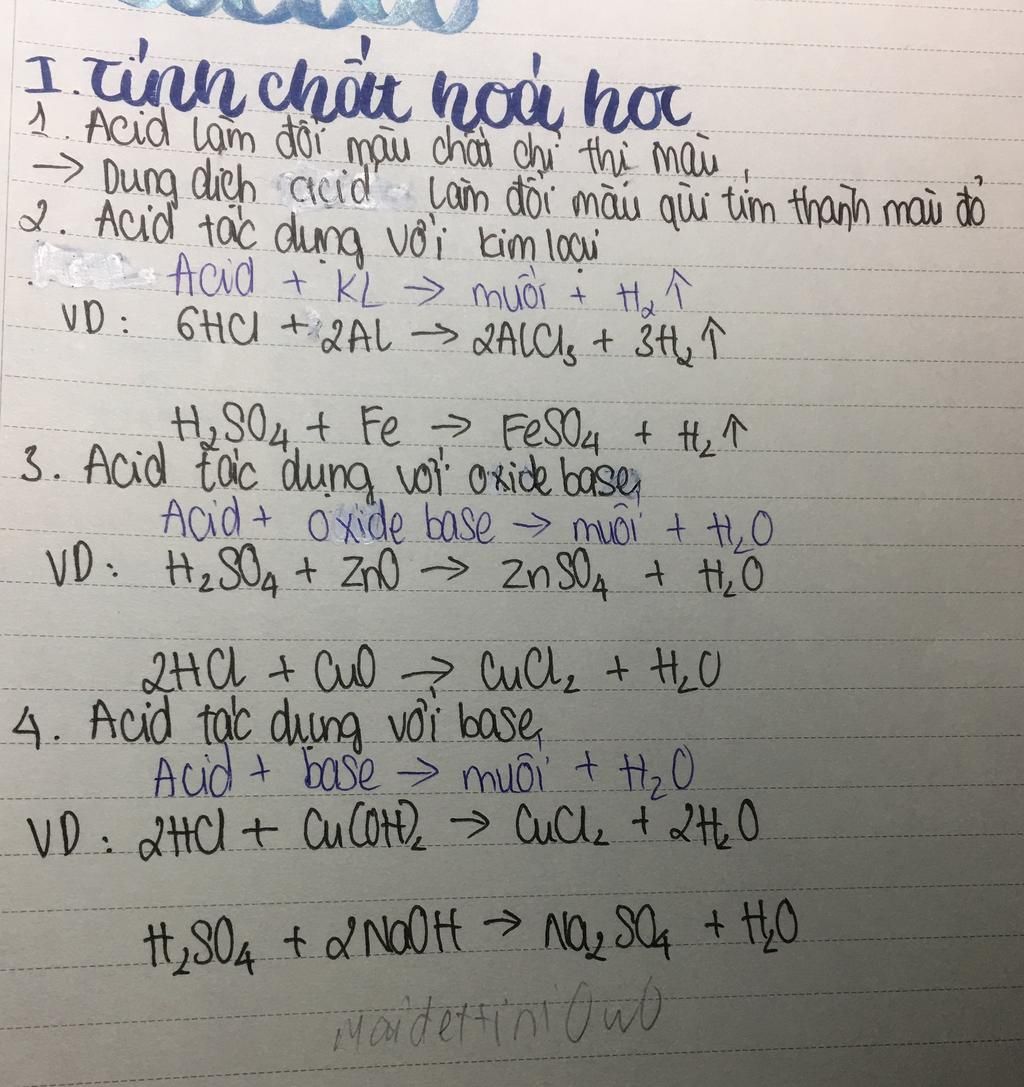 I. Tính chất hoá học
1. Acid làm đổi màu chất chỉ thị màu
→ Dung dịch acid làm đổi màu qùi tím thành màu đỏ
2. Acid tác dụng với kim loại
Acid + KL → muối + H₂↑
VD: 6HCl + 2Al → 2AlCl₃ + 3H₂↑
H₂SO₄ + Fe → FeSO₄ + H₂↑
3. Acid tác dụng với oxide base
Acid + oxide base → muối + H₂O
VD: H₂SO₄ + ZnO → ZnSO₄ + H₂O
2HCl + CuO → CuCl₂ + H₂O
4. Acid tác dụng với base
Acid + base → muối + H₂O
VD: 2HCl + Cu(OH)₂ → CuCl₂ + 2H₂O
H₂SO₄ + 2NaOH → Na₂SO₄ + H₂O